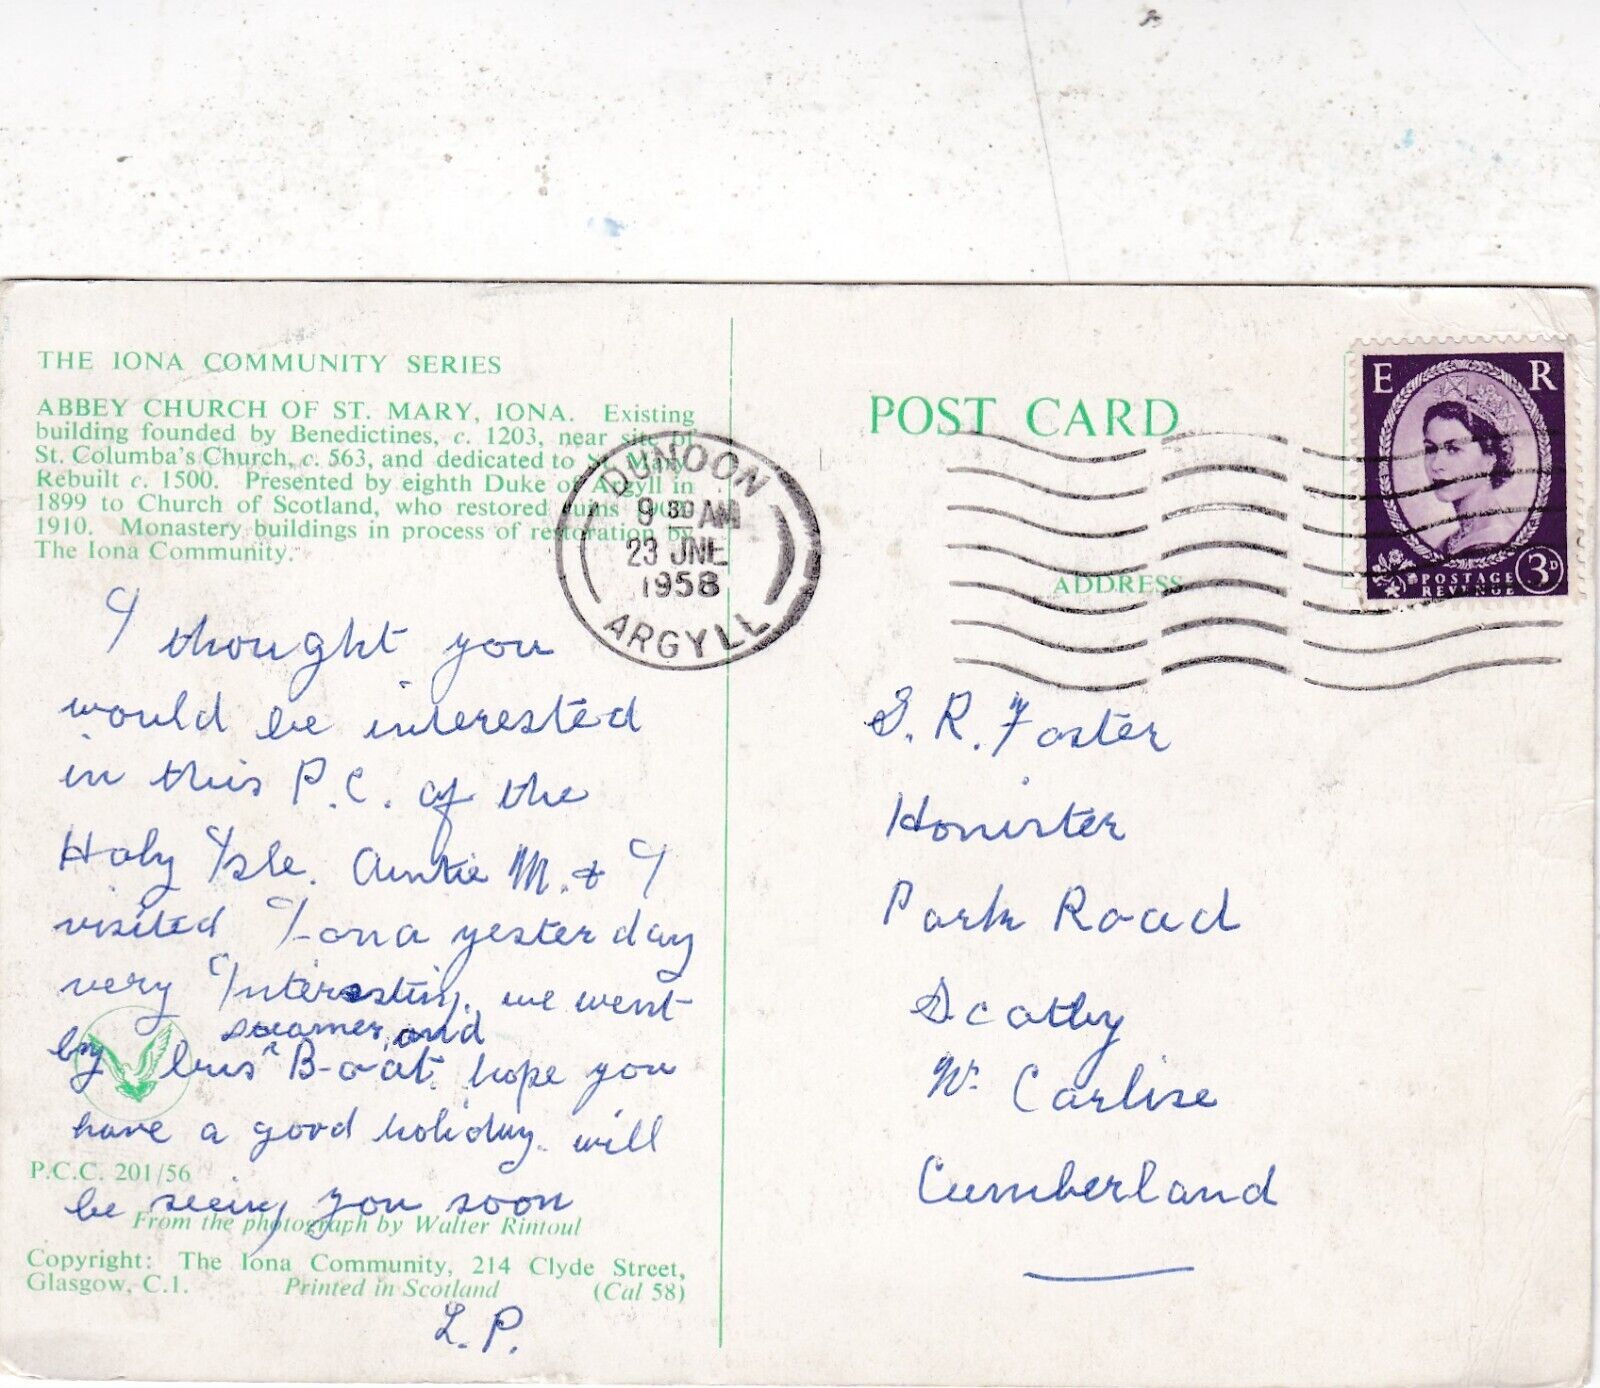 THE IONA COMMUNITY SERIES
ABBEY CHURCH OF ST. MARY, IONA. Existing
building founded by Benedictines, c. 1203, near site of
St. Columba's Church, c. 563, and dedicated to St. Mary.
Rebuilt c. 1500. Presented by eighth Duke of Argyll in
1899 to Church of Scotland, who restored ruins
1910. Monastery buildings in process of restoration by
The Iona Community.
I thought you
would be interested
in this P.C. of the
Holy Isle. Auntie M. & I
visited Iona yesterday
very Interesting. we went
steamer, and
by bus ^ B-oat. hope you
have a good holiday. will
be seeing you soon
P.C.C. 201/56
From the photograph by Walter Rintoul
Copyright: The Iona Community, 214 Clyde Street,
Glasgow, C.1. Printed in Scotland (Cal 58)
L. P.
DUNOON
9 30 AM
23 JNE
1958
ARGYLL
POST CARD
ADDRESS
E R
POSTAGE
REVENUE
3D
S. R. Foster
Honister
Park Road
Scotby
Nr Carlise
Cumberland